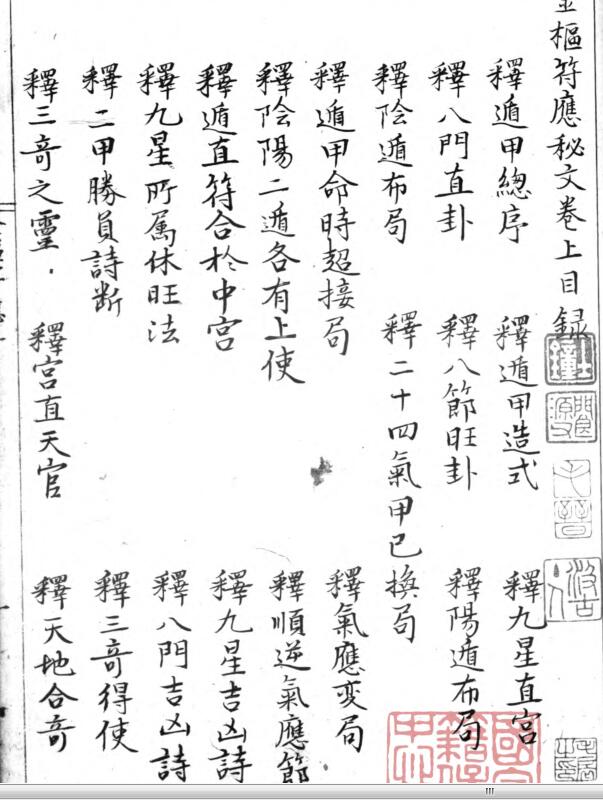 樞符應秘文卷上目録
釋遁甲總序　釋遁甲造式　釋九星直宫
釋八門直卦　釋八節旺卦　釋陽遁布局
釋陰遁布局　釋二十四氣甲已換局
釋遁甲命時超接局　釋氣應变局
釋陰陽二遁各有上使　釋順逆氣應節
釋遁直符合扵中宫　釋九星吉凶詩
釋九星所属休旺法　釋八門吉凶詩
釋二甲勝負詩断　釋三竒得使
釋三竒之靈　釋宫直天官　釋天地合竒